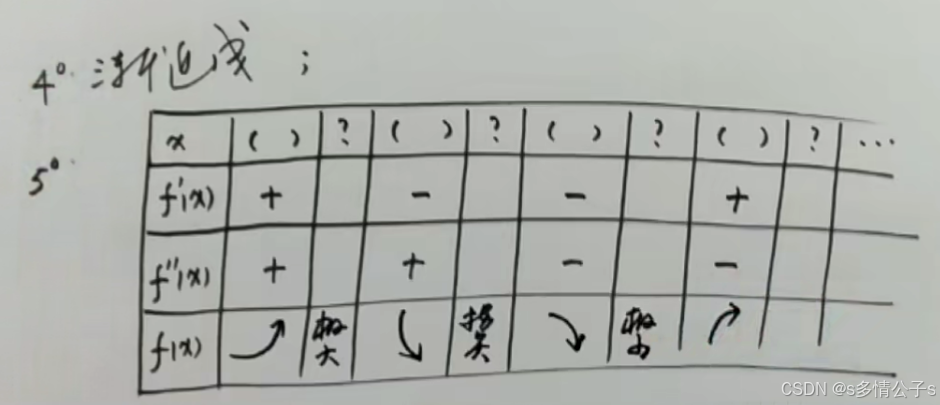 4°. 渐近线；
5°
x ( ) ? ( ) ? ( ) ? ( ) ? ...
f'(x) + - - +
f''(x) + + - -
f(x) 极大 拐点 极小
CSDN @s多情公子s